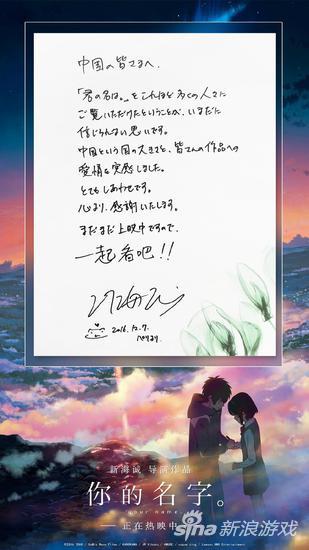 中国の皆さまへ、
「君の名は。」をこれほど多くの人々に
ご覧いただけたということが、いまだに
信じられない思いです。
中国という国の大きさと、皆さんの作品への
愛情を実感しました。
とてもしあわせです。
心より、感謝いたします。
まだまだ上映中ですので、
一起看吧!!
2016.12.7.
新海诚 导演作品
你的名字。
your name.
正在热映中
sina
新浪游戏